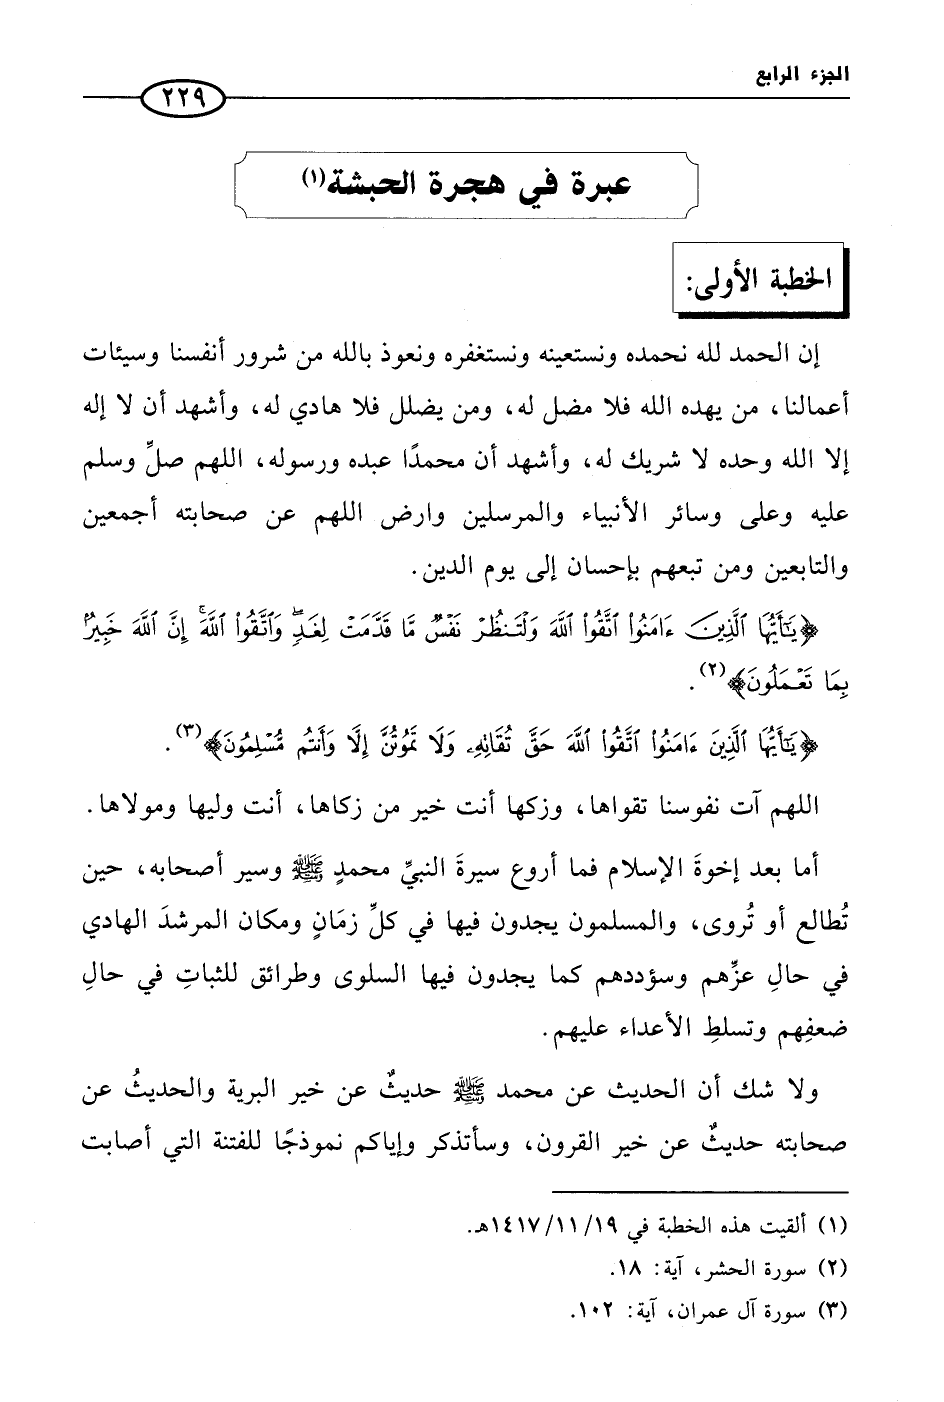 الجزء الرابع
٢٢٩
عبرة في هجرة الحبشة(١)
الخطبة الأولى:
إن الحمد لله نحمده ونستعينه ونستغفره ونعوذ بالله من شرور أنفسنا وسيئات
أعمالنا، من يهده الله فلا مضل له، ومن يضلل فلا هادي له، وأشهد أن لا إله
إلا الله وحده لا شريك له، وأشهد أن محمدًا عبده ورسوله، اللهم صلِّ وسلم
عليه وعلى وسائر الأنبياء والمرسلين وارض اللهم عن صحابته أجمعين
والتابعين ومن تبعهم بإحسان إلى يوم الدين.
﴿يَٰٓأَيُّهَا ٱلَّذِينَ ءَامَنُوا۟ ٱتَّقُوا۟ ٱللَّهَ وَلْتَنظُرْ نَفْسٌ مَّا قَدَّمَتْ لِغَدٍۖ وَٱتَّقُوا۟ ٱللَّهَۚ إِنَّ ٱللَّهَ خَبِيرٌۢ
بِمَا تَعْمَلُونَ﴾(٢).
﴿يَٰٓأَيُّهَا ٱلَّذِينَ ءَامَنُوا۟ ٱتَّقُوا۟ ٱللَّهَ حَقَّ تُقَاتِهِۦ وَلَا تَمُوتُنَّ إِلَّا وَأَنتُم مُّسْلِمُونَ﴾(٣).
اللهم آت نفوسنا تقواها، وزكها أنت خير من زكاها، أنت وليها ومولاها.
أما بعد إخوةَ الإسلام فما أروع سيرةَ النبيِّ محمدٍ ﷺ وسير أصحابه، حين
تُطالع أو تُروى، والمسلمون يجدون فيها في كلِّ زمَانٍ ومكان المرشدَ الهادي
في حالِ عزِّهم وسؤددهم كما يجدون فيها السلوى وطرائق للثباتِ في حالِ
ضعفِهم وتسلطِ الأعداء عليهم.
ولا شك أن الحديث عن محمد ﷺ حديثٌ عن خير البرية والحديثُ عن
صحابته حديثٌ عن خير القرون، وسأتذكر وإياكم نموذجًا للفتنة التي أصابت
(١) ألقيت هذه الخطبة في ١٤١٧/١١/١٩هـ.
(٢) سورة الحشر، آية: ١٨.
(٣) سورة آل عمران، آية: ١٠٢.